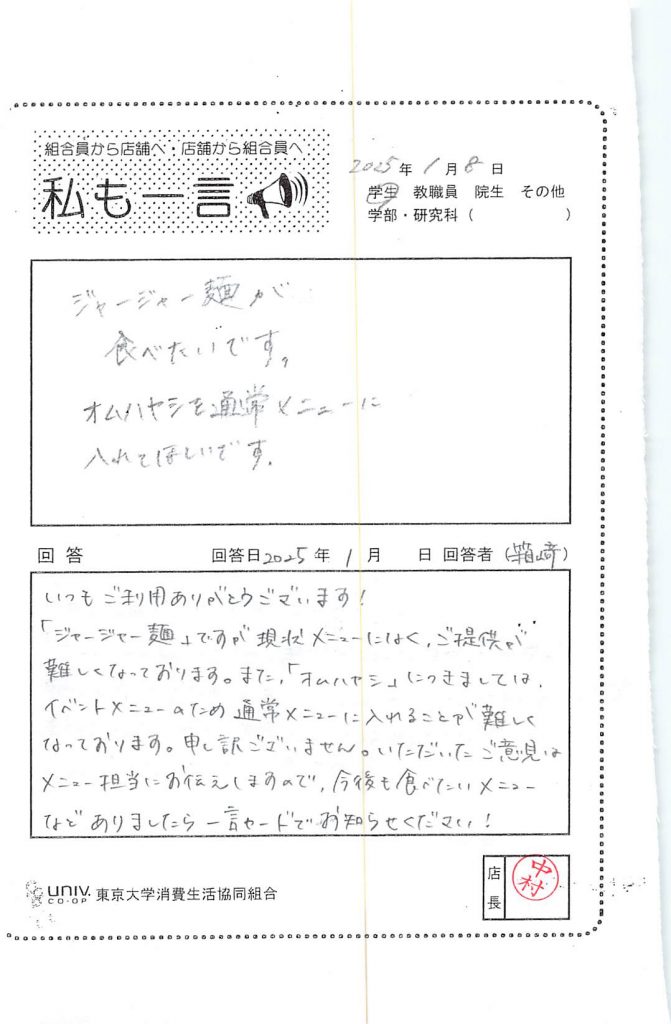 組合員から店舗へ・店舗から組合員へ
私も一言
2025年1月8日
学生 教職員 院生 その他
学部・研究科（ ）
ジャージャー麺が
食べたいです。
オムハヤシを通常メニューに
入れてほしいです。
回答 回答日2025年1月 日 回答者（箱﨑）
いつもご利用ありがとうございます!
「ジャージャー麺」ですが現状メニューになく、ご提供が
難しくなっております。また、「オムハヤシ」につきましては、
イベントメニューのため通常メニューに入れることが難しく
なっております。申し訳ございません。いただいたご意見は
メニュー担当にお伝えしますので、今後も食べたいメニュー
などありましたら一言カードでお知らせください!
UNIV.
CO-OP
東京大学消費生活協同組合
店長
中村